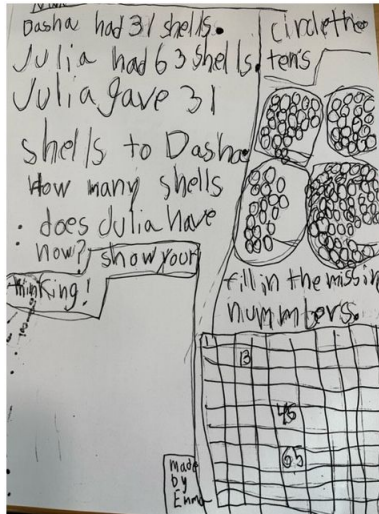 Dasha had 31 shells.
Julia had 63 shells.
Julia gave 31
shells to Dasha.
How many shells
does Julia have
now? show your
thinking!
circle the
ten's
fill in the missin
nummbers.
1
13
45
65
made
by
Emma